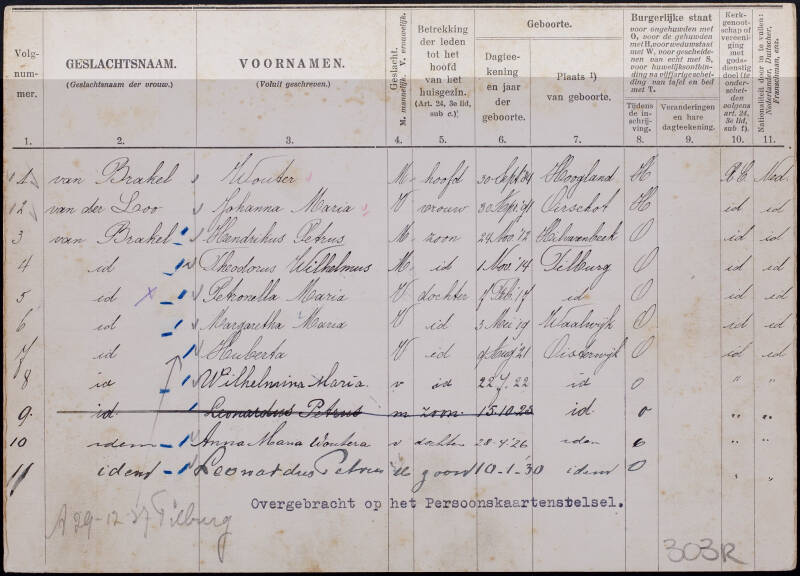 Volgnummer.
GESLACHTSNAAM.
(Geslachtsnaam der vrouw.)
VOORNAMEN.
(Voluit geschreven.)
Geslacht.
M. mannelijk. V. vrouwelijk.
Betrekking
der leden
tot het
hoofd
van het
huisgezin.
(Art. 24, 3e lid,
sub c.)
Geboorte.
Dagteekening
en jaar
der
geboorte.
Plaats 1)
van geboorte.
Burgerlijke staat
voor ongehuwden met
O, voor de gehuwden
met H, voor wedumstaat
met W, voor gescheidenen
van echt met S,
voor huwelijksontbinding
na vijfjarige scheiding
van tafel en bed
met T.
Tijdens
de inschrijving.
Veranderingen
en hare
dagteekening.
Kerkgenootschap
of vereeniging
met
godsdienstig
doel (te onderscheiden
volgens
art. 24,
3e lid,
sub f.)
Nationaliteit voluit in te vullen:
Nederlander, Duitscher,
Franschman, enz.
1. 2. 3. 4. 5. 6. 7. 8. 9. 10. 11.
1 van Brakel Wouter M hoofd 30 Sept. Hoogland H R.C. Ned.
2 van der Loo Johanna Maria V vrouw 30 Sept. '91 Oirschot H id id
3 van Brakel Hendrikus Petrus M zoon 24 Nov. '12 Hilvarenbeek O id id
4 id Theodorus Wilhelmus M id 1 Nov. '14 Tilburg O id id
5 id Petronella Maria V dochter 7 Feb. '17 id O id id
6 id Margaretha Maria V id 3 Mei '19 Waalwijk O id id
7 id Huberta V id 9 Aug '21 Oisterwijk O id id
8 id Wilhelmina Maria v id 22.7.22 id O " "
9. id. Leonardus Petrus m zoon. 15.10.23 id. O " "
10 idem Anna Maria Woutera v dochter 28-4-'26 idem O " "
11 idem Leonardus Petrus M zoon 10-1-'30 idem O " "
Overgebracht op het Persoonskaartenstelsel.
A 29-12-37 Tilburg
303R